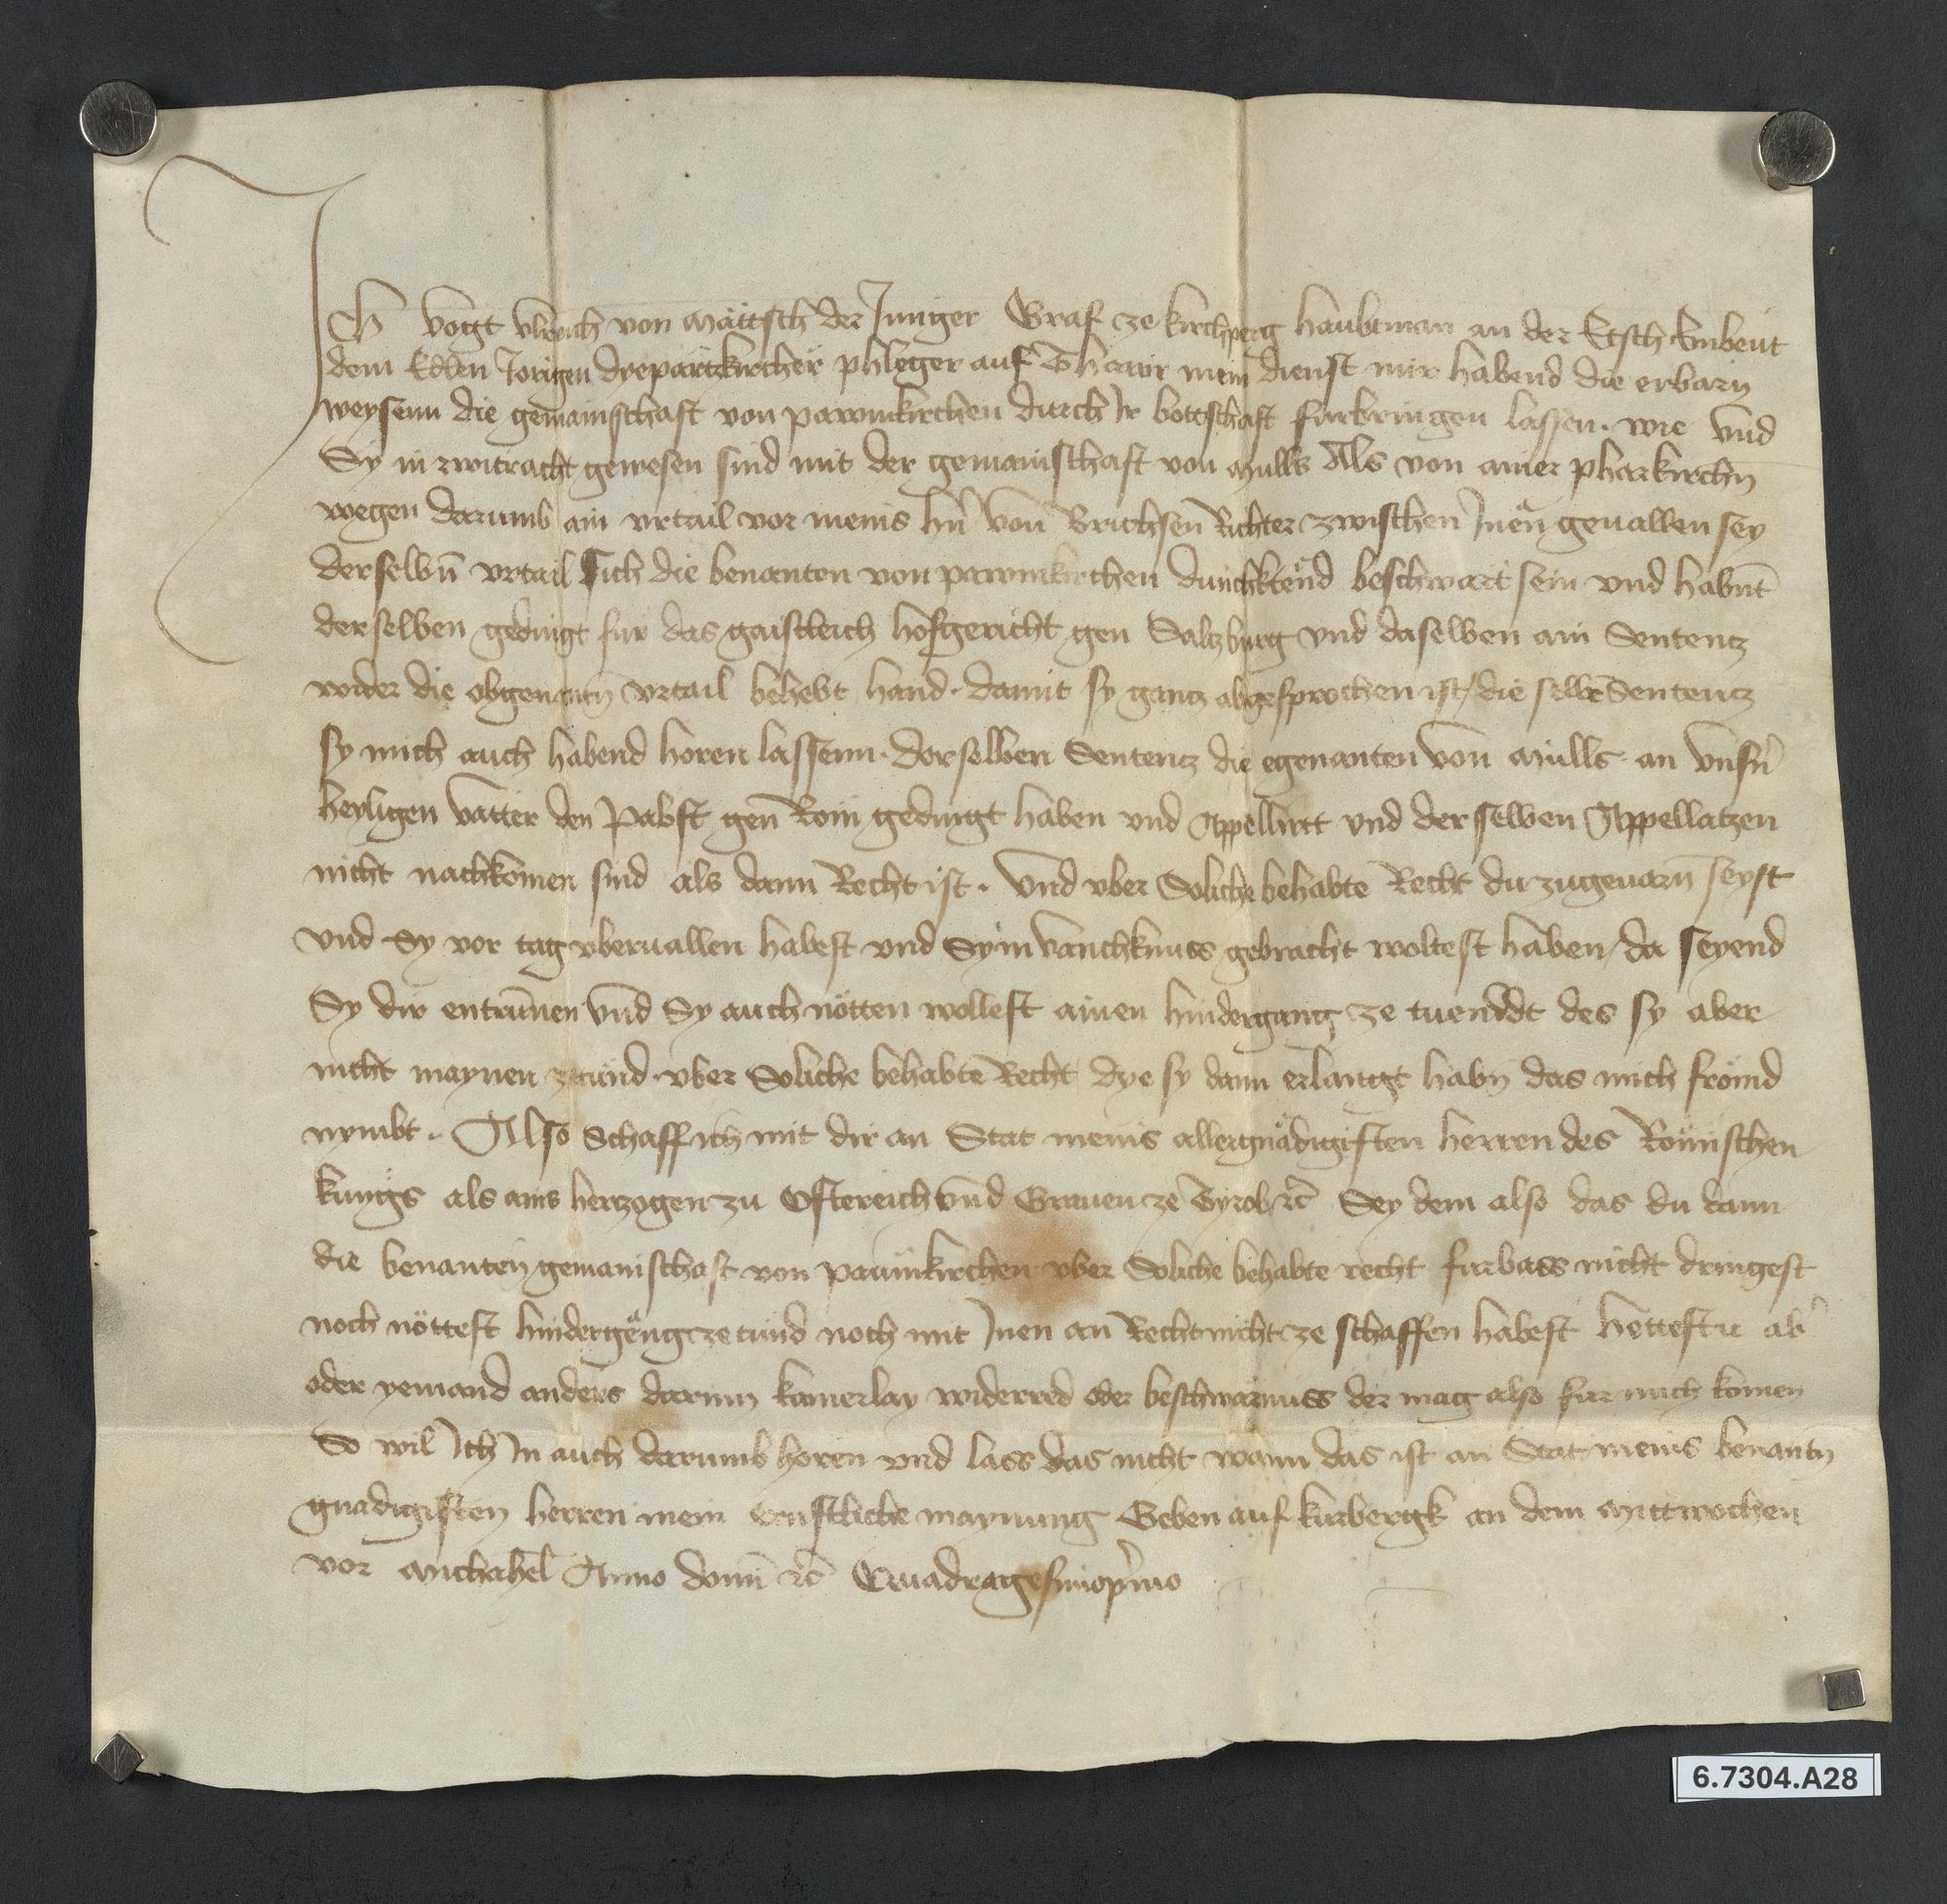 Ich vogt vlreich von Mättsch der Junger Graf ze kirchperg haubtman an der Etsch Embeut
dem Edlen Jorigen dyepärtzkircher phleger auf Thawr mein dienst mir habend die erbarn
weysenn die gemainschaft von pawmkirchen durch Ir bottschaft furbringen lassen. wie vnd
Sy in zwitracht gewesen sind mit der gemainschaft von Mulls Als von ainer pharkirchn
wegen darumb ain vrtail vor meins hn̄ von Brichsen Richter zwischen Inen geuallen sey
derselbn̄ vrtail Sich die benanten von pawmkirchen dunckhtend beschwärt sein vnd habnt̄
derselben gedingt fur das gaistleich hofgericht gen Saltzburg vnd daselben ain Sentencz
wider die obgenantn̄ vrtail behebt hand. damit sy gantz abgesprochen ist/die selbē Sentencz
sy mich auch habend horen lassenn. derselben Sentencz die egenanten von Mülls. an vnsn̄
heyligen vatter den Pabst gen Rom gedingt haben vnd Appellirtt vnd der selben Appellatzen
nicht nachkomen sind als dann Recht ist. vnd vber Soliche behabte Recht du zugeuarn̄ seyst
vnd Sy vor tag vberuallen habest vnd Sy in vanchknuss gebracht woltest haben/da seyend
Sy dir entrūnen vnd Sy auch nötten wollest ainen hindergang ze tuenddt des sy aber
nicht maynen ze tund. vber Soliche behabte Recht dye sy dann erlangt habn das mich frömd
nymbt. Also Schaff ich mit dir an Stat meins allergnädigisten herren des Römischen
kungs als ains hertzogen zu Ostereich vnd Grauen ze Tyrol rc̄ Sey dem also das du dann
die benanten gemainschaft von paumkirchen vber Soliche behabte recht furbass nicht dringest
noch nöttest hindergeng ze tund noch mit Inen an Recht nicht ze schaffen habest hettestu ab̄
oder yemand anders darinn kainerlay widerred oder beschwärnuss der mag also fur mich komen
So wil Ich In auch darumb horen vnd lass das nicht wann das ist an Stat meins benantn
gnadigisten herren mein ernstliche maynung Geben auf kurbergk an dem Mittwochen
vor Michahel Anno domī rc̄ Quadragesimop̄mo
6.7304.A28